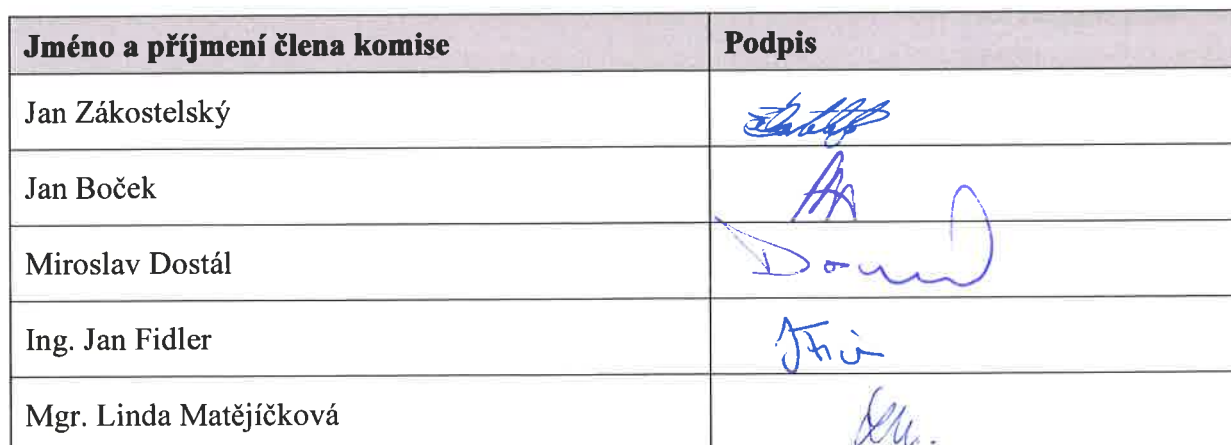 Jméno a příjmení člena komise Podpis
Jan Zákostelský
Jan Boček
Miroslav Dostál
Ing. Jan Fidler
Mgr. Linda Matějíčková